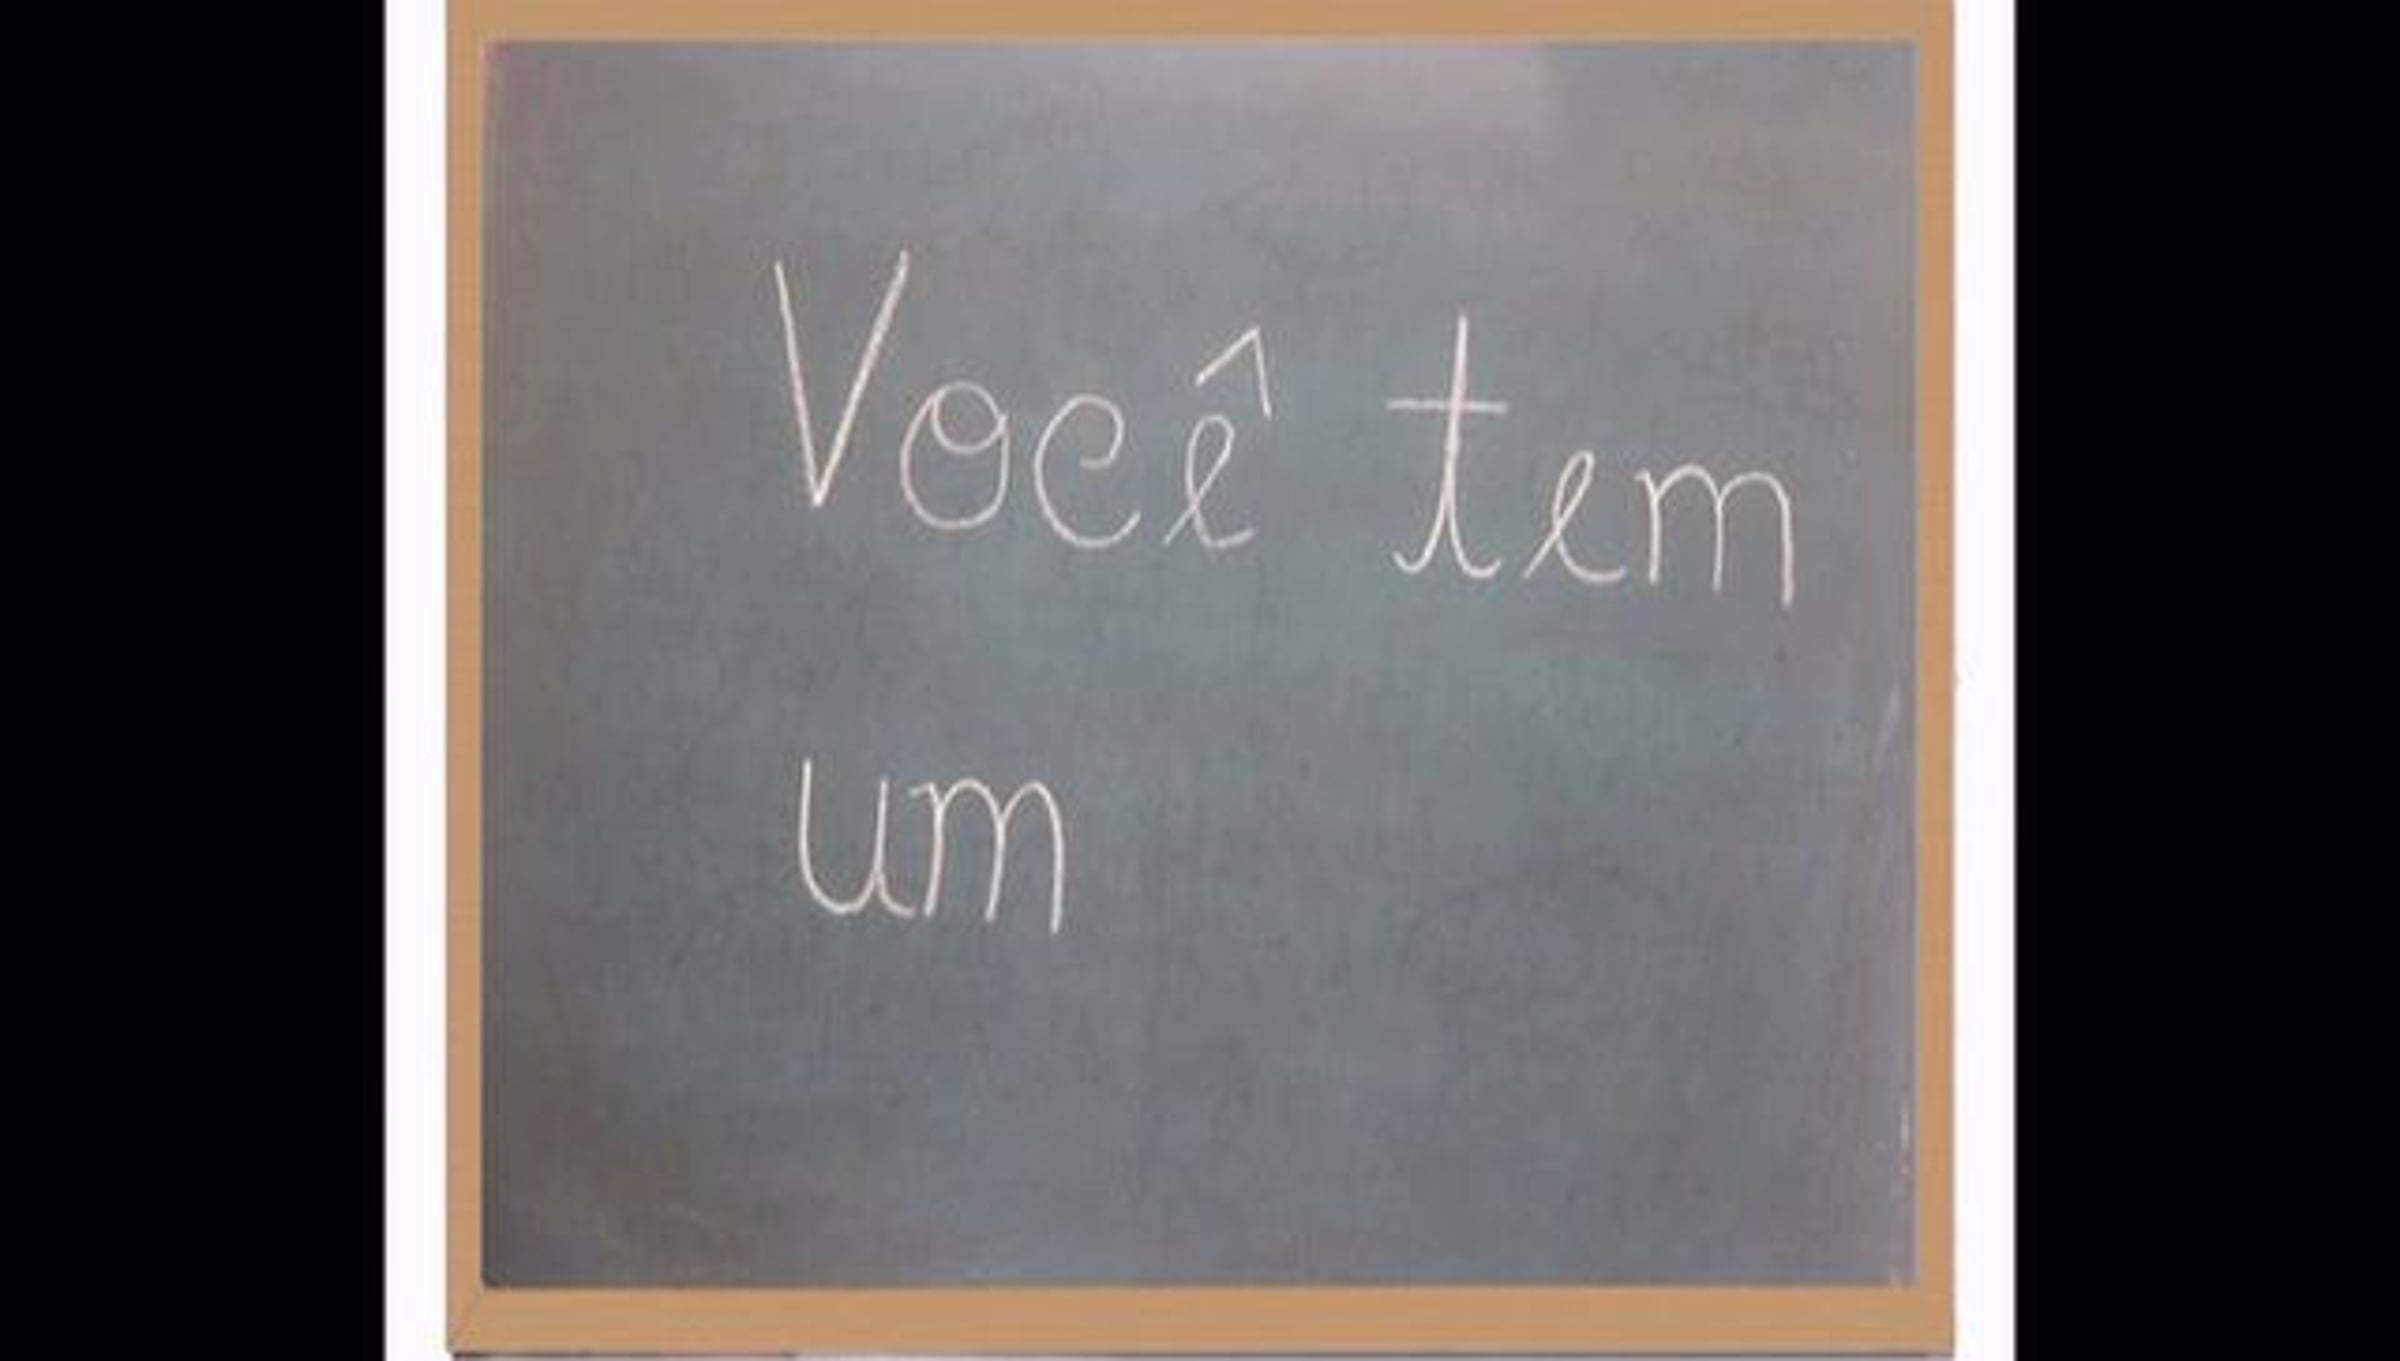 Você tem
um